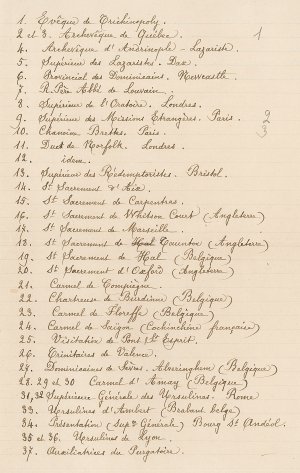 1. Evêque de Trichinopoly.
1
2 et 3. Archevêque de Québec.
4. Archevêque d'Andrinople - Lazariste
5. Supérieur des Lazaristes. Dax.
6. Provincial des Dominicains. Newcastle
7. R. Père Abbé de Louvain.
8. Supérieur de l'Oratoire. Londres.
9. Supérieur des Missions Etrangères. Paris.
2
10. Chanoine Brettes. Paris.
3
11. Duc de Norfolk. Londres.
12. idem.
13. Supérieur des Rédemptoristes. Bristol.
14. St Sacrement d'Aix.
15. St Sacrement de Carpentras.
16. St Sacrement de Court (Angleterre)
17. St Sacrement de Marseille.
18. St Sacrement de Taunton (Angleterre)
19. St Sacrement de Hal (Belgique)
20. St Sacrement d'Oxford (Angleterre)
21. Carmel de Compiègne.
22. Chartreuse de Burdinne (Belgique)
23. Carmel de Floreffe (Belgique)
24. Carmel de Saïgon (Cochinchine française)
25. Visitation de Pont St Esprit.
26. Trinitaires de Valence.
27. Dominicaines de Sèvres. Alveringhem (Belgique)
28. 29 et 30 Carmel d'Amay (Belgique)
31, 32 Supérieure Générale des Ursulines. Rome
33. Ursulines d'Ambert (Brabant belge)
34. Présentation (Supre Générale) Bourg St Andéol.
35 et 36. Ursulines de Lyon.
37. Auxiliatrices du Purgatoire.